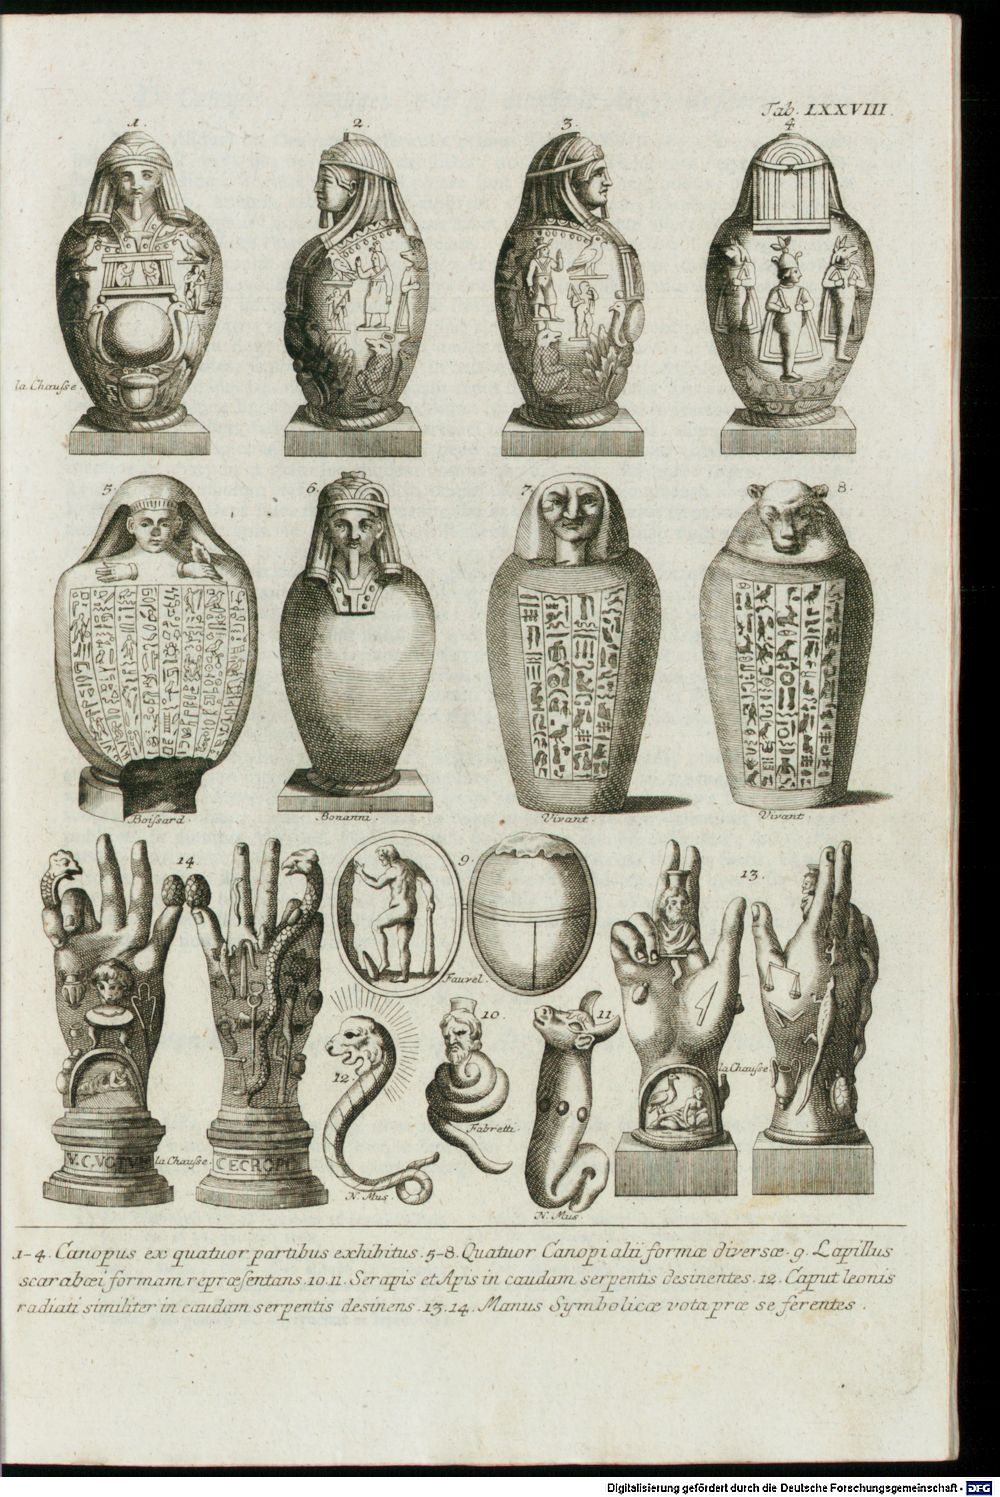 Tab. LXXVIII.
1.
2.
3.
4
la Chausse.
5.
6.
7.
8.
Boissard.
Bonanni.
Vivant.
Vivant.
14
9.
13.
Fauvel.
10.
11.
12.
la Chausse.
Fabretti.
V. C. VOTVM
la Chausse.
CECROPI
N. Mus
N. Mus.
1-4. Canopus ex quatuor partibus exhibitus. 5-8. Quatuor Canopi alii formæ diversæ. 9. Lapillus
scarabæi formam repræsentans. 10. 11. Serapis et Apis in caudam serpentis desinentes. 12. Caput leonis
radiati similiter in caudam serpentis desinens. 13. 14. Manus Symbolicæ vota præ se ferentes.
Digitalisierung gefördert durch die Deutsche Forschungsgemeinschaft - DFG